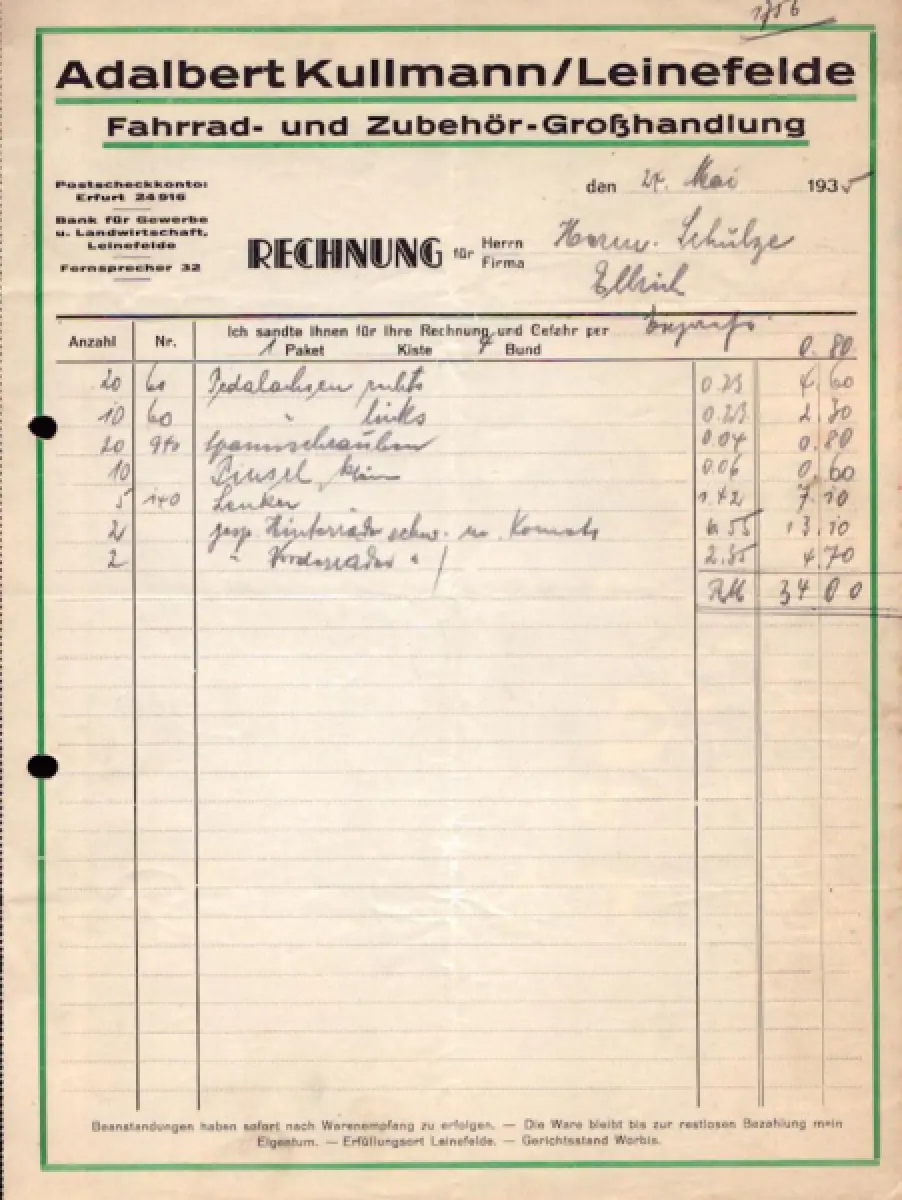 1756
Adalbert Kullmann/Leinefelde
Fahrrad- und Zubehör-Großhandlung
Postscheckkonto:
Erfurt 24916
Bank für Gewerbe
u. Landwirtschaft,
Leinefelde
Fernsprecher 32
den 24. Mai 1935
RECHNUNG für Herrn Firma
Herm. Schulze
Ellrich
Anzahl Nr. Ich sandte Ihnen für Ihre Rechnung und Gefahr per
1 Paket Kiste Bund 0.80
20 60 Pedalachsen rechts 0.23 4.60
10 60 " links 0.23 2.30
20 Spannschrauben 0.04 0.80
10 Pinsel klein 0.06 0.60
5 140 Lenker 1.42 7.10
2 Hinterräder schw. m. 6.55 13.10
2 " Vorderräder " 4.70
RM 34 00
Beanstandungen haben sofort nach Warenempfang zu erfolgen. — Die Ware bleibt bis zur restlosen Bezahlung mein
Eigentum. — Erfüllungsort Leinefelde. — Gerichtsstand Worbis.